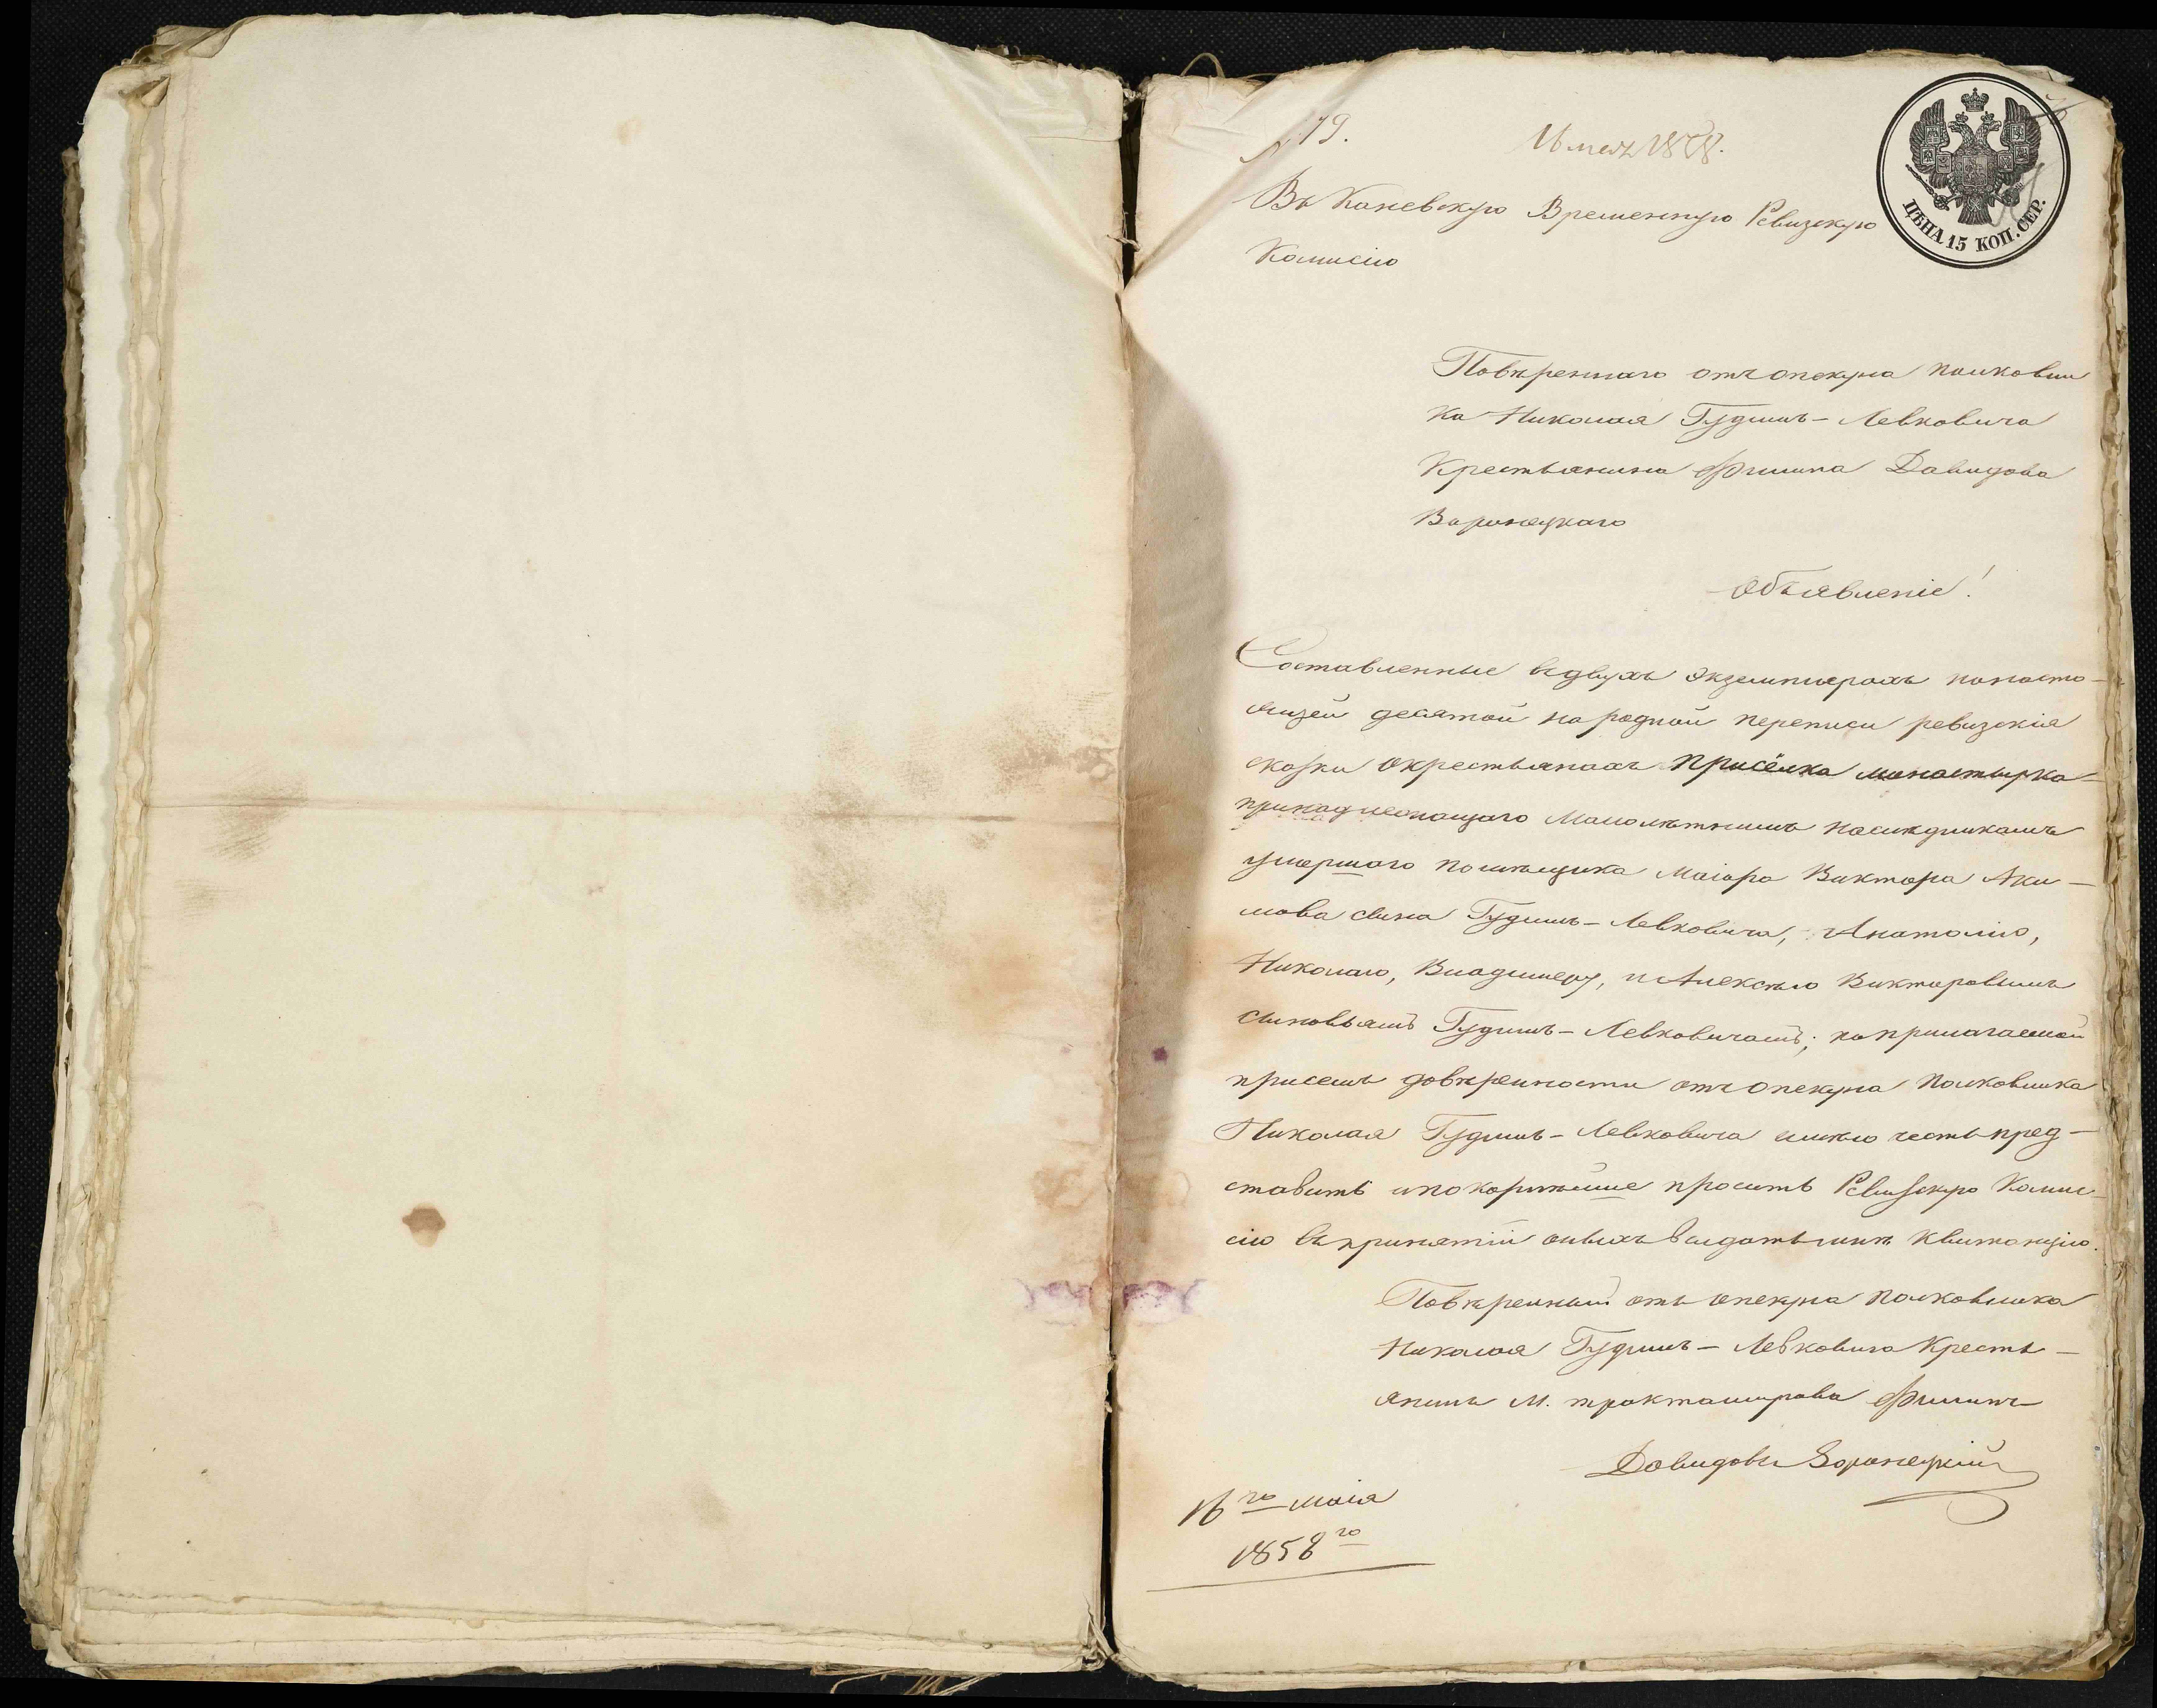 № 19.
16 мая 1858.
ЦѢНА 15 КОП. СЕР.
Въ Каневскую Временную Ревизскую
Комисію
Повѣреннаго отъ опекуна полковни
ка Николая Гудимъ-Левковича
Крестьянина Филипа Давидова
Варонецкаго
Объявленіе!
Составленные въ двухъ экземплярахъ понасто-
ящей десятой народной переписи ревизскія
сказки окрестьянахъ присёлка монастырка
принадлежащаго Малолѣтнимъ наслѣдникамъ
умершаго помѣщика Маіора Виктора Аки-
мова сына Гудимъ-Левковича, Анатолію,
Николаю, Владимеру, и Алексѣю Викторовымъ
сыновьямъ Гудимъ-Левковичамъ; поприлагаемой
присемъ довѣренности отъ опекуна Полковника
Николая Гудимъ-Левковича имѣю честь пред-
ставить ипокорнѣйше просить Ревизскую Комис-
сію въ принятіи оныхъ выдать мнѣ Квитанцію.
Повѣренный отъ опекуна Полковника
Николая Гудимъ-Левковича Кресть-
янинъ М. трактамирова Филипъ
Давидовъ Воронецкій
16го маія
1858го